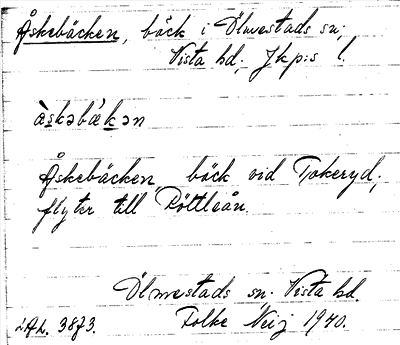 Åskebäcken, bäck i Ölmestads sn;
Vista hd; Jkp:s l.
àskəbǽkən
Åskebäcken bäck vid Tokeryd;
flyter till Röttleån.
Ölmestads sn. Vista hd.
LAL. 3873. Folke Neij 1940.